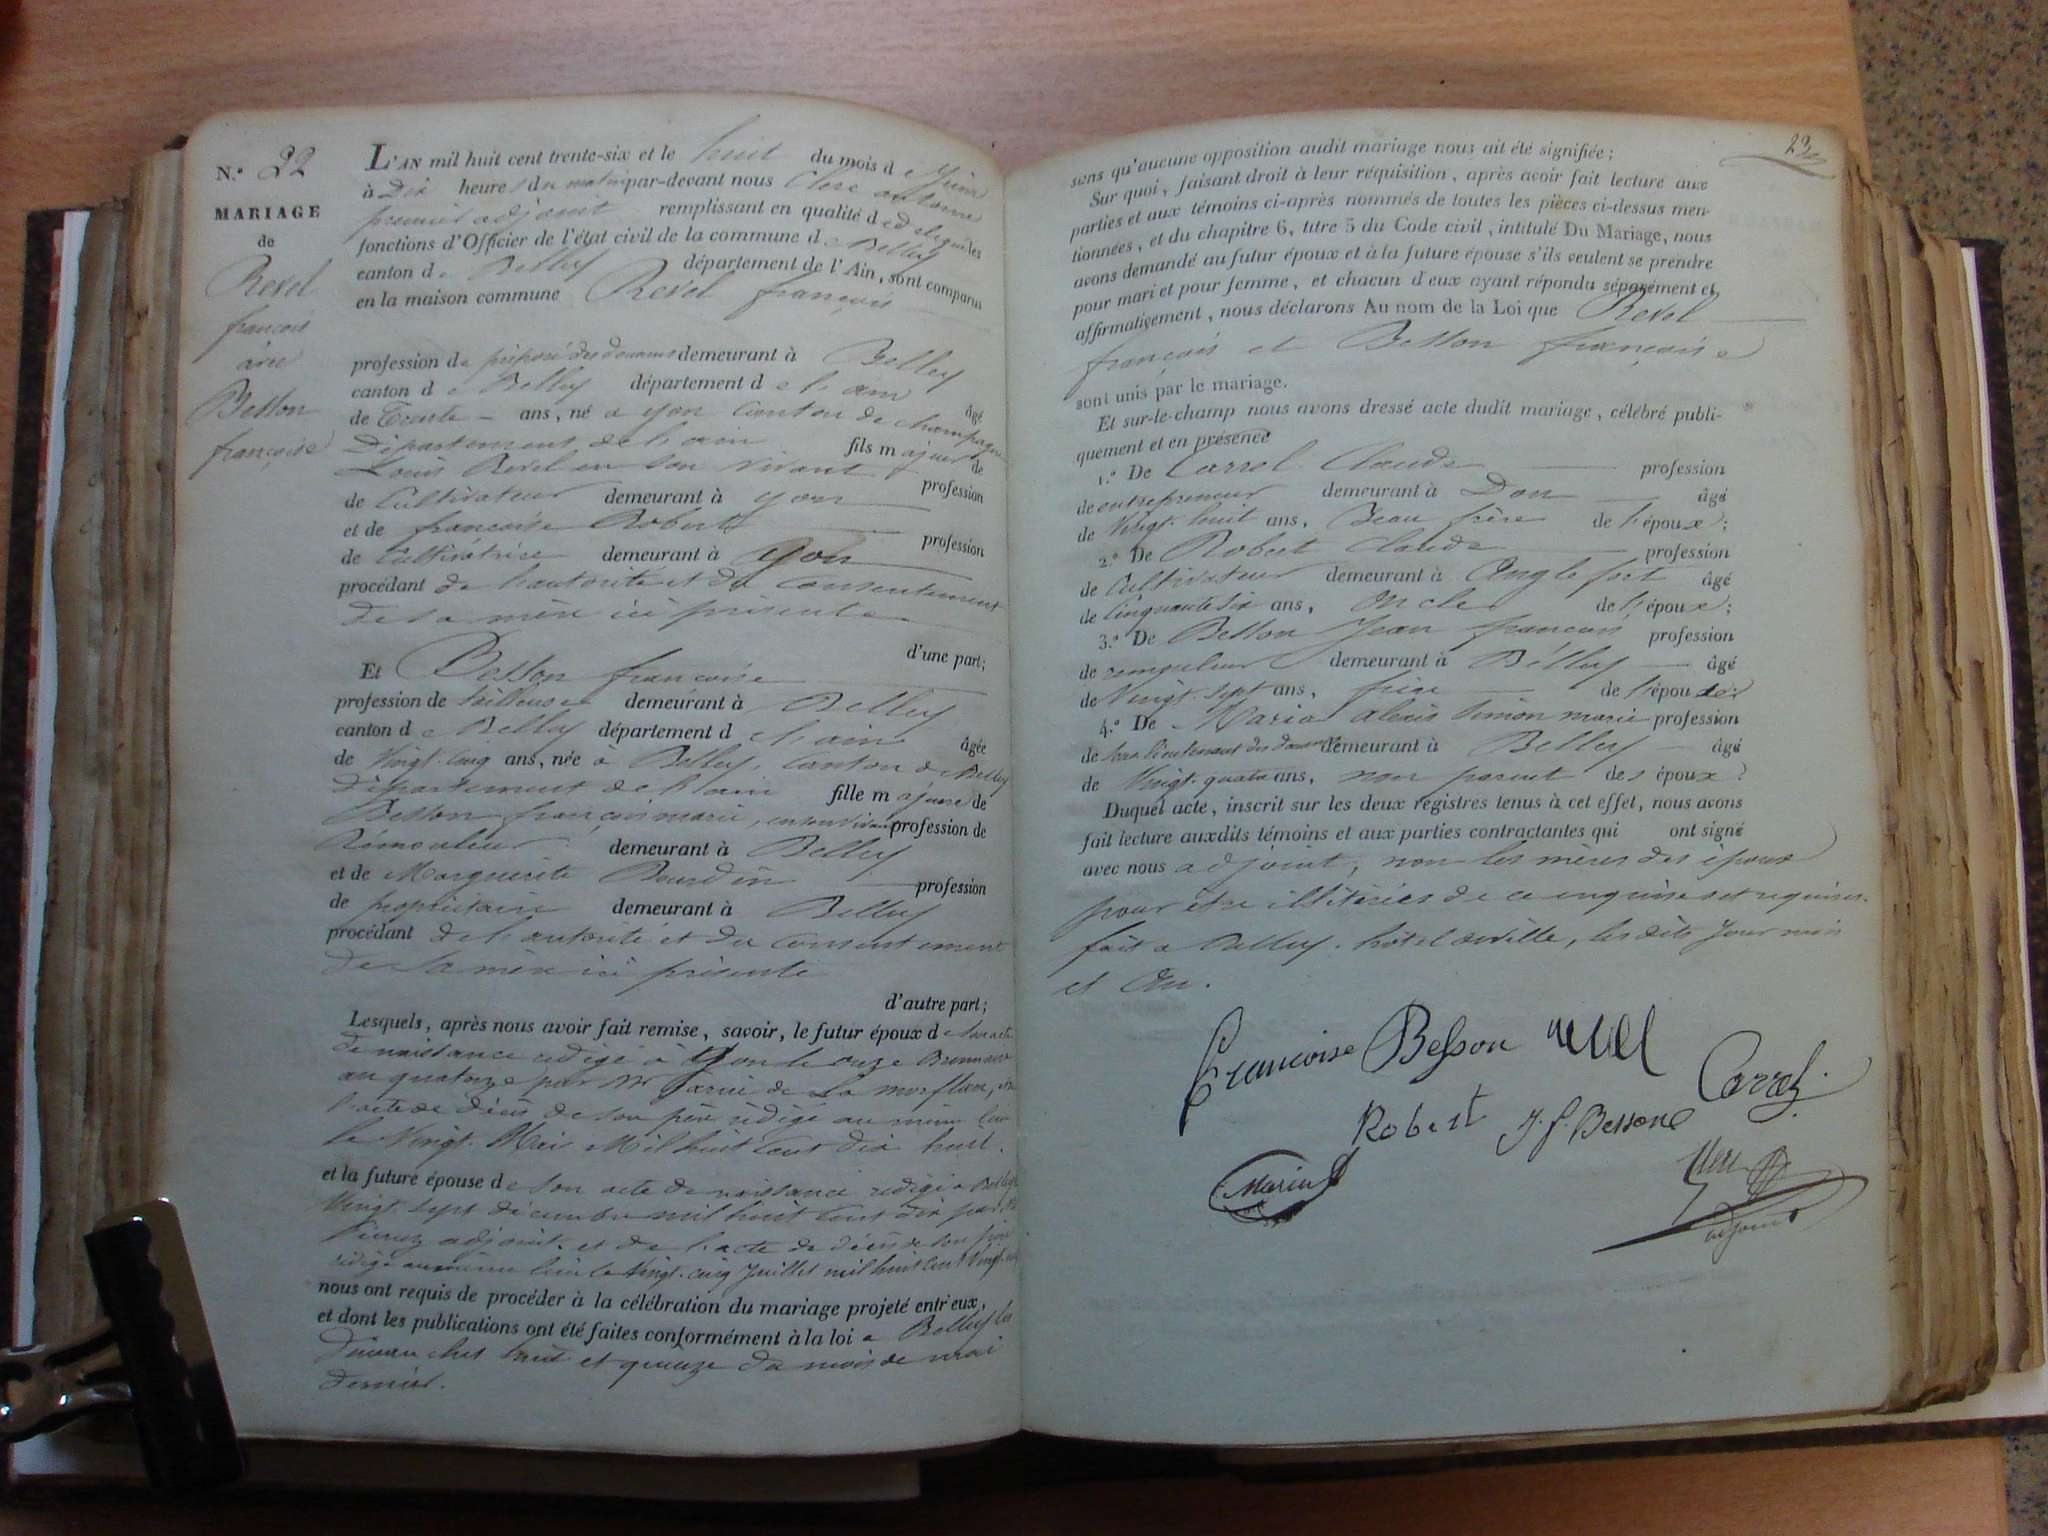 N.° 22
MARIAGE
de
Revel
françois
avec
Besson
françoise
L'AN mil huit cent trente-six et le huit du mois de Juin
à Dix heures du matin par-devant nous Clerc antoine
premier adjoint remplissant en qualité de délégué les
fonctions d'Officier de l'état civil de la commune de Belley
canton de Belley département de l'Ain, sont comparus
en la maison commune Revel françois
profession de préposé des douanes demeurant à Belley
canton de Belley département de l'ain âgé
de Trente ans, né a yon Canton de champagne
Département de l'ain fils majeur de
Louis Revel en son vivant profession
de Cultivateur demeurant à yon
et de françoise Robert profession
de Cultivatrice demeurant à yon
procédant de l'autorité et du Consentement
de sa mère ici présente
d'une part;
Et Besson françoise
profession de tailleuse demeurant à Belley
canton de Belley département de l'ain âgée
de Vingt-cinq ans, née à Belley, Canton de Belley
département de l'ain fille majeure de
Besson françois marie, en son vivant profession de
Rémouleur demeurant à Belley
et de Marguerite Bourdin profession
de propriétaire demeurant à Belley
procédant de l'autorité et du Consentement
de sa mère ici présente
d'autre part;
Lesquels, après nous avoir fait remise, savoir, le futur époux de son acte
de naissance rédigé à Yon le onze Brumaire
an quatorze par Mr de La
l'acte de décès de son père rédigé au même lieu
le Vingt Mai Mil huit Cent dix huit.
et la future épouse de son acte de naissance rédigé a Belley
Vingt-sept décembre mil huit Cent dix par
adjoint, et de l'acte de décès de son père
rédigé au même lieu le Vingt-cinq Juillet mil huit Cent Vingt
nous ont requis de procéder à la célébration du mariage projeté entr'eux,
et dont les publications ont été faites conformément à la loi a Belley les
dimanches huit et quinze du mois de mai
dernier.
23
sans qu'aucune opposition audit mariage nous ait été signifiée;
Sur quoi, faisant droit à leur réquisition, après avoir fait lecture aux
parties et aux témoins ci-après nommés de toutes les pièces ci-dessus men-
tionnées, et du chapitre 6, titre 5 du Code civil, intitulé Du Mariage, nous
avons demandé au futur époux et à la future épouse s'ils veulent se prendre
pour mari et pour femme, et chacun d'eux ayant répondu séparément et
affirmativement, nous déclarons Au nom de la Loi que Revel
françois et Besson françoise
sont unis par le mariage.
Et sur-le-champ nous avons dressé acte dudit mariage, célébré publi-
quement et en présence
1.° De Carrel Claude profession
de entrepreneur demeurant à Don âgé
de Vingt-huit ans, Beau frère de l'époux;
2.° De Robert Claude profession
de Cultivateur demeurant à Anglefort âgé
de Cinquante six ans, oncle de l'époux;
3.° De Besson Jean françois profession
de remouleur demeurant à Belley âgé
de Vingt-sept ans, frère de l'épouse;
4.° De Marin alexis Simon marie profession
de sous lieutenant des douanes demeurant à Belley âgé
de Vingt-quatre ans, non parent des époux?
Duquel acte, inscrit sur les deux registres tenus à cet effet, nous avons
fait lecture auxdits témoins et aux parties contractantes qui ont signé
avec nous adjoint, non les mères des époux
pour être illitérées de ce enquises et requises.
fait a Belley, hôtel de ville, les dits Jour mois
et An.
Françoise Besson Revel
Carrel
Robert J. f. Bessone
Marin
Clerc
adjoint